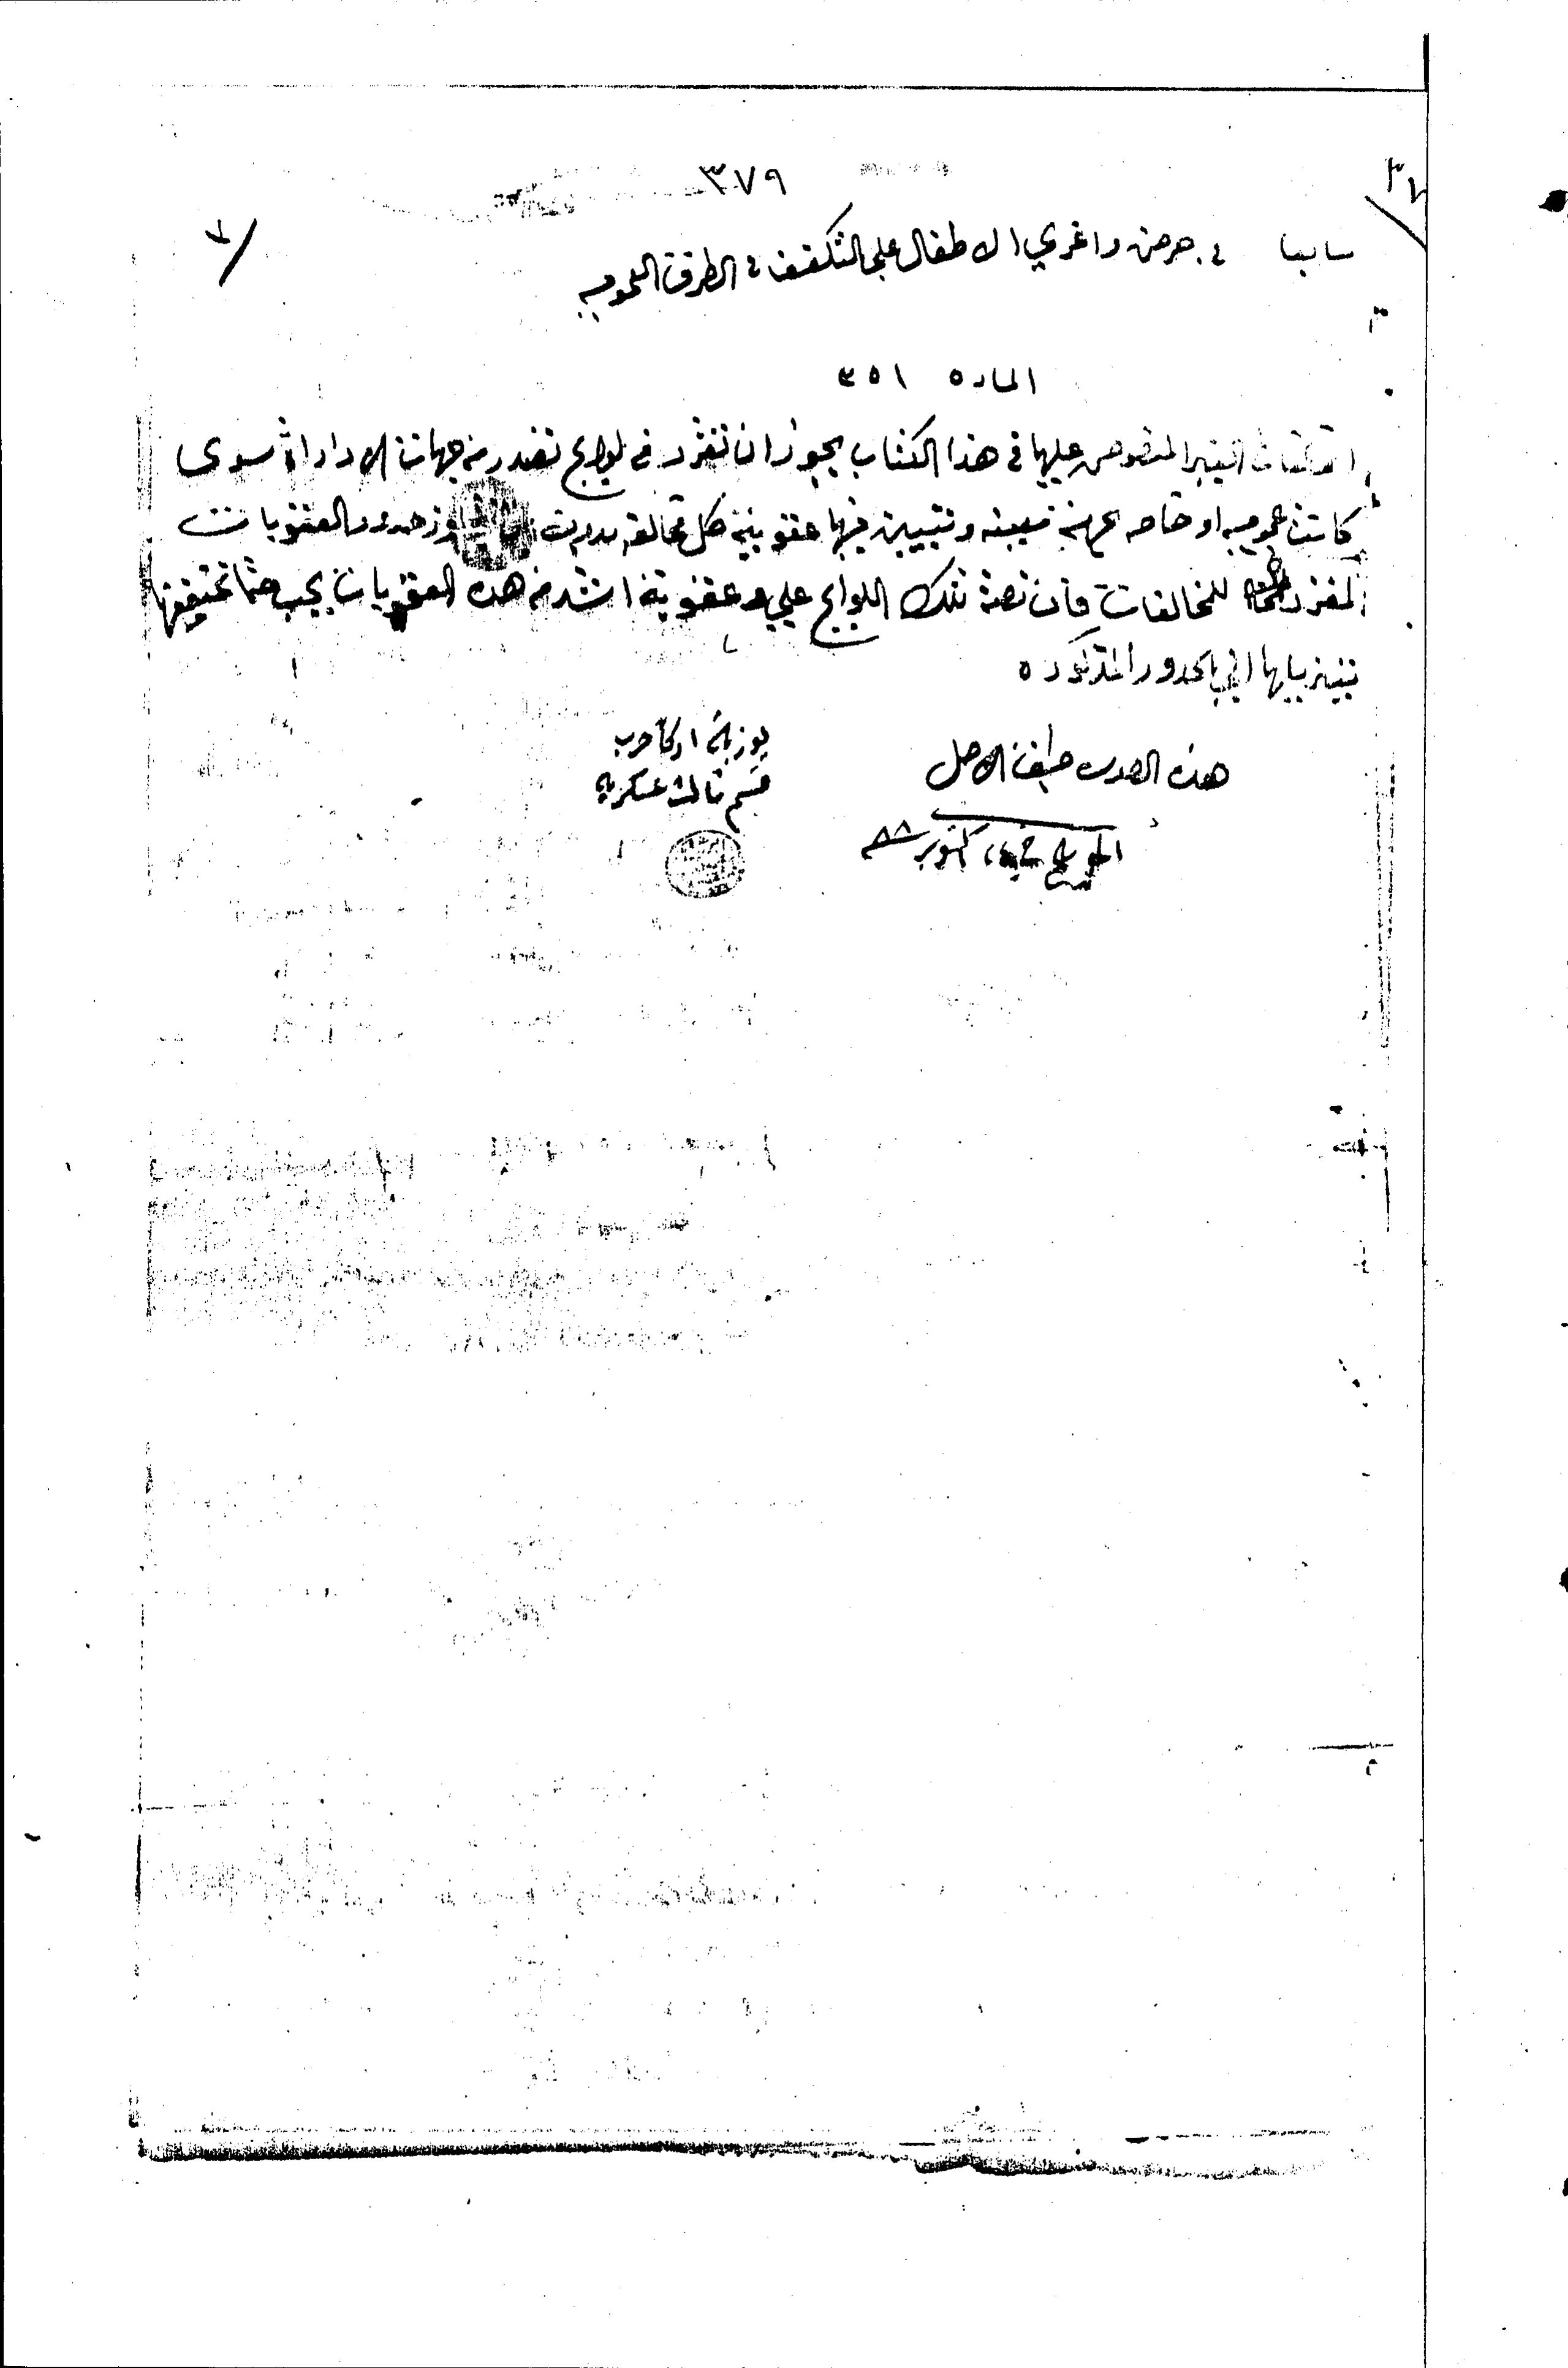 ٣٧٩
سابعا في من حرض واغري الاطفال علي التكفف في الطرق العموميه
الماده ٣٥١
المخالفات الغير المنصوص عليها في هذا الكتاب يجوز ان تقرر في لوايح تصدر من جهات الادارة سوي
كانت عموميه او خاصه بجهة معينه وتتبين فيها عقوبة كل مخالفه بدون حدود العقوبات
المقرره للمخالفات فان نصت تلك اللوايح علي عقوبة اشد من هذه العقوبات يجب حتما تخفيفها
بتنزيلها الي الحدود المذكوره
هذه الصورة طبق الاصل
اكتوبر ٨٨
يوزباشي اركانحرب
قسم ثالث عسكريه